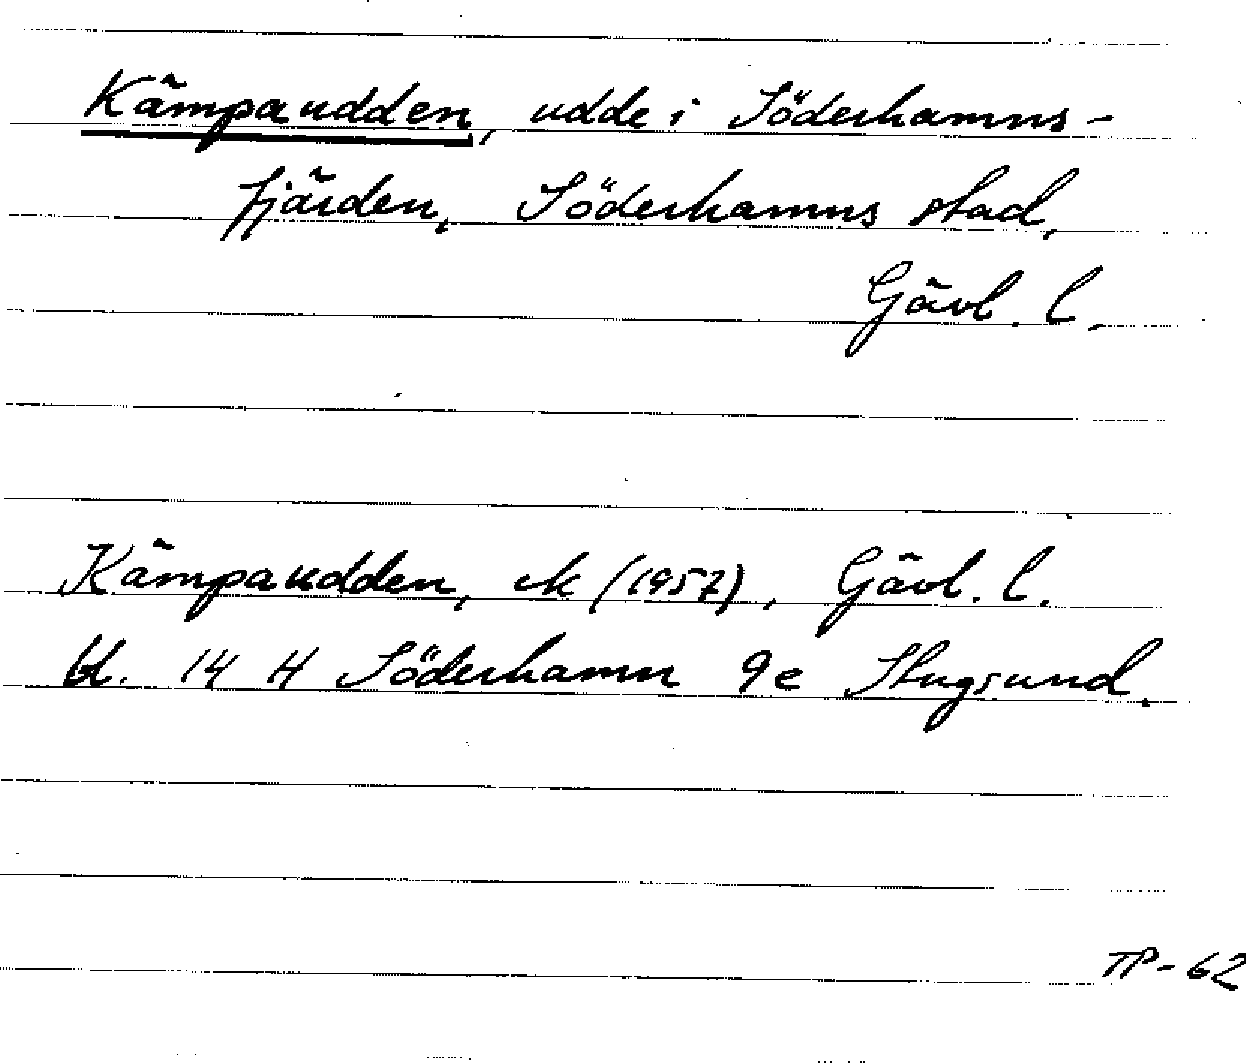 Kämpaudden, udde i Söderhamns-
fjärden, Söderhamns stad,
Gävl. l.
Kämpaudden, ek (1957), Gävl. l.
bl. 14 H Söderhamn 9e Stugsund.
TP-62